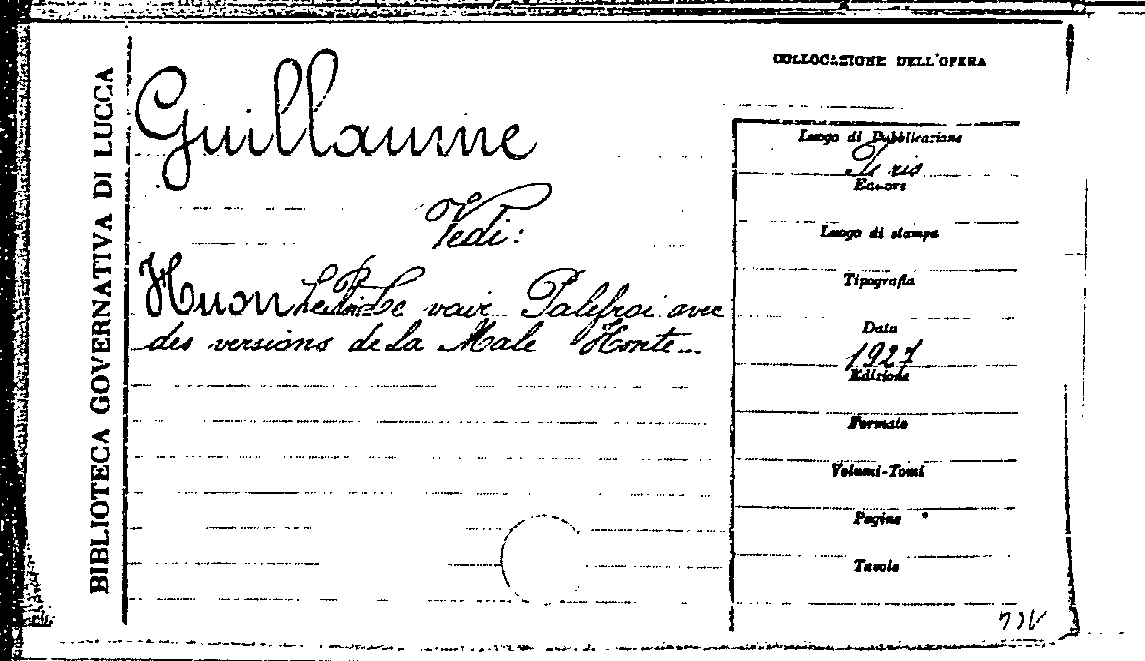 BIBLIOTECA GOVERNATIVA DI LUCCA
Guillaume
Vedi:
Huon Le Roi Le vair Palefroi avec
des versions de la Male Honte...
COLLOCAZIONE DELL'OPERA
Luogo di Pubblicazione
Paris
Editore
Luogo di stampa
Tipografia
Data
1927
Edizione
Formato
Volumi-Tomi
Pagine
Tavole